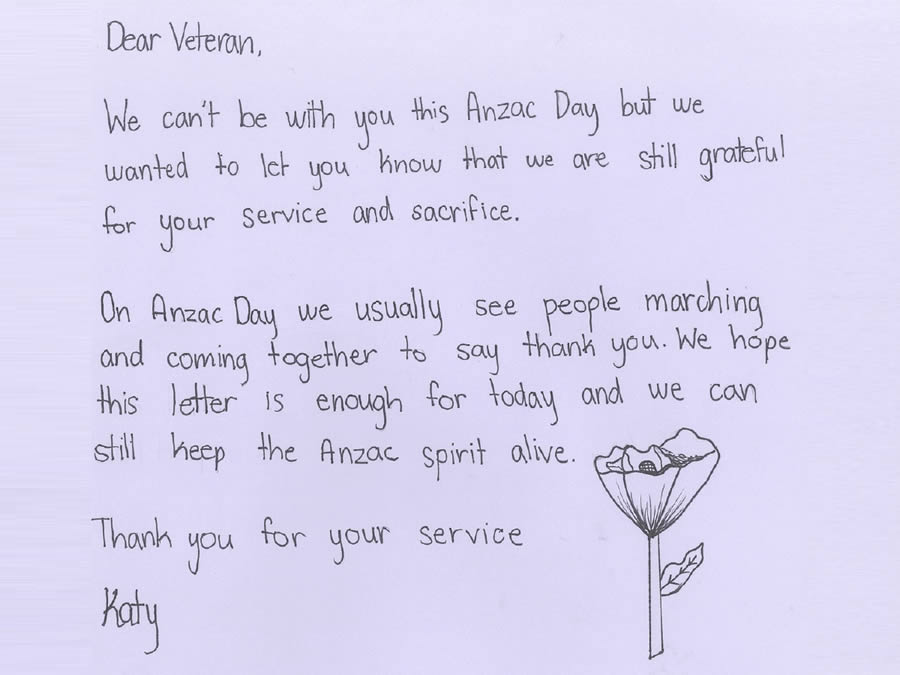 Dear Veteran,
We can't be with you this Anzac Day but we
wanted to let you know that we are still grateful
for your service and sacrifice.
On Anzac Day we usually see people marching
and coming together to say thank you. We hope
this letter is enough for today and we can
still keep the Anzac spirit alive.
Thank you for your service
Katy